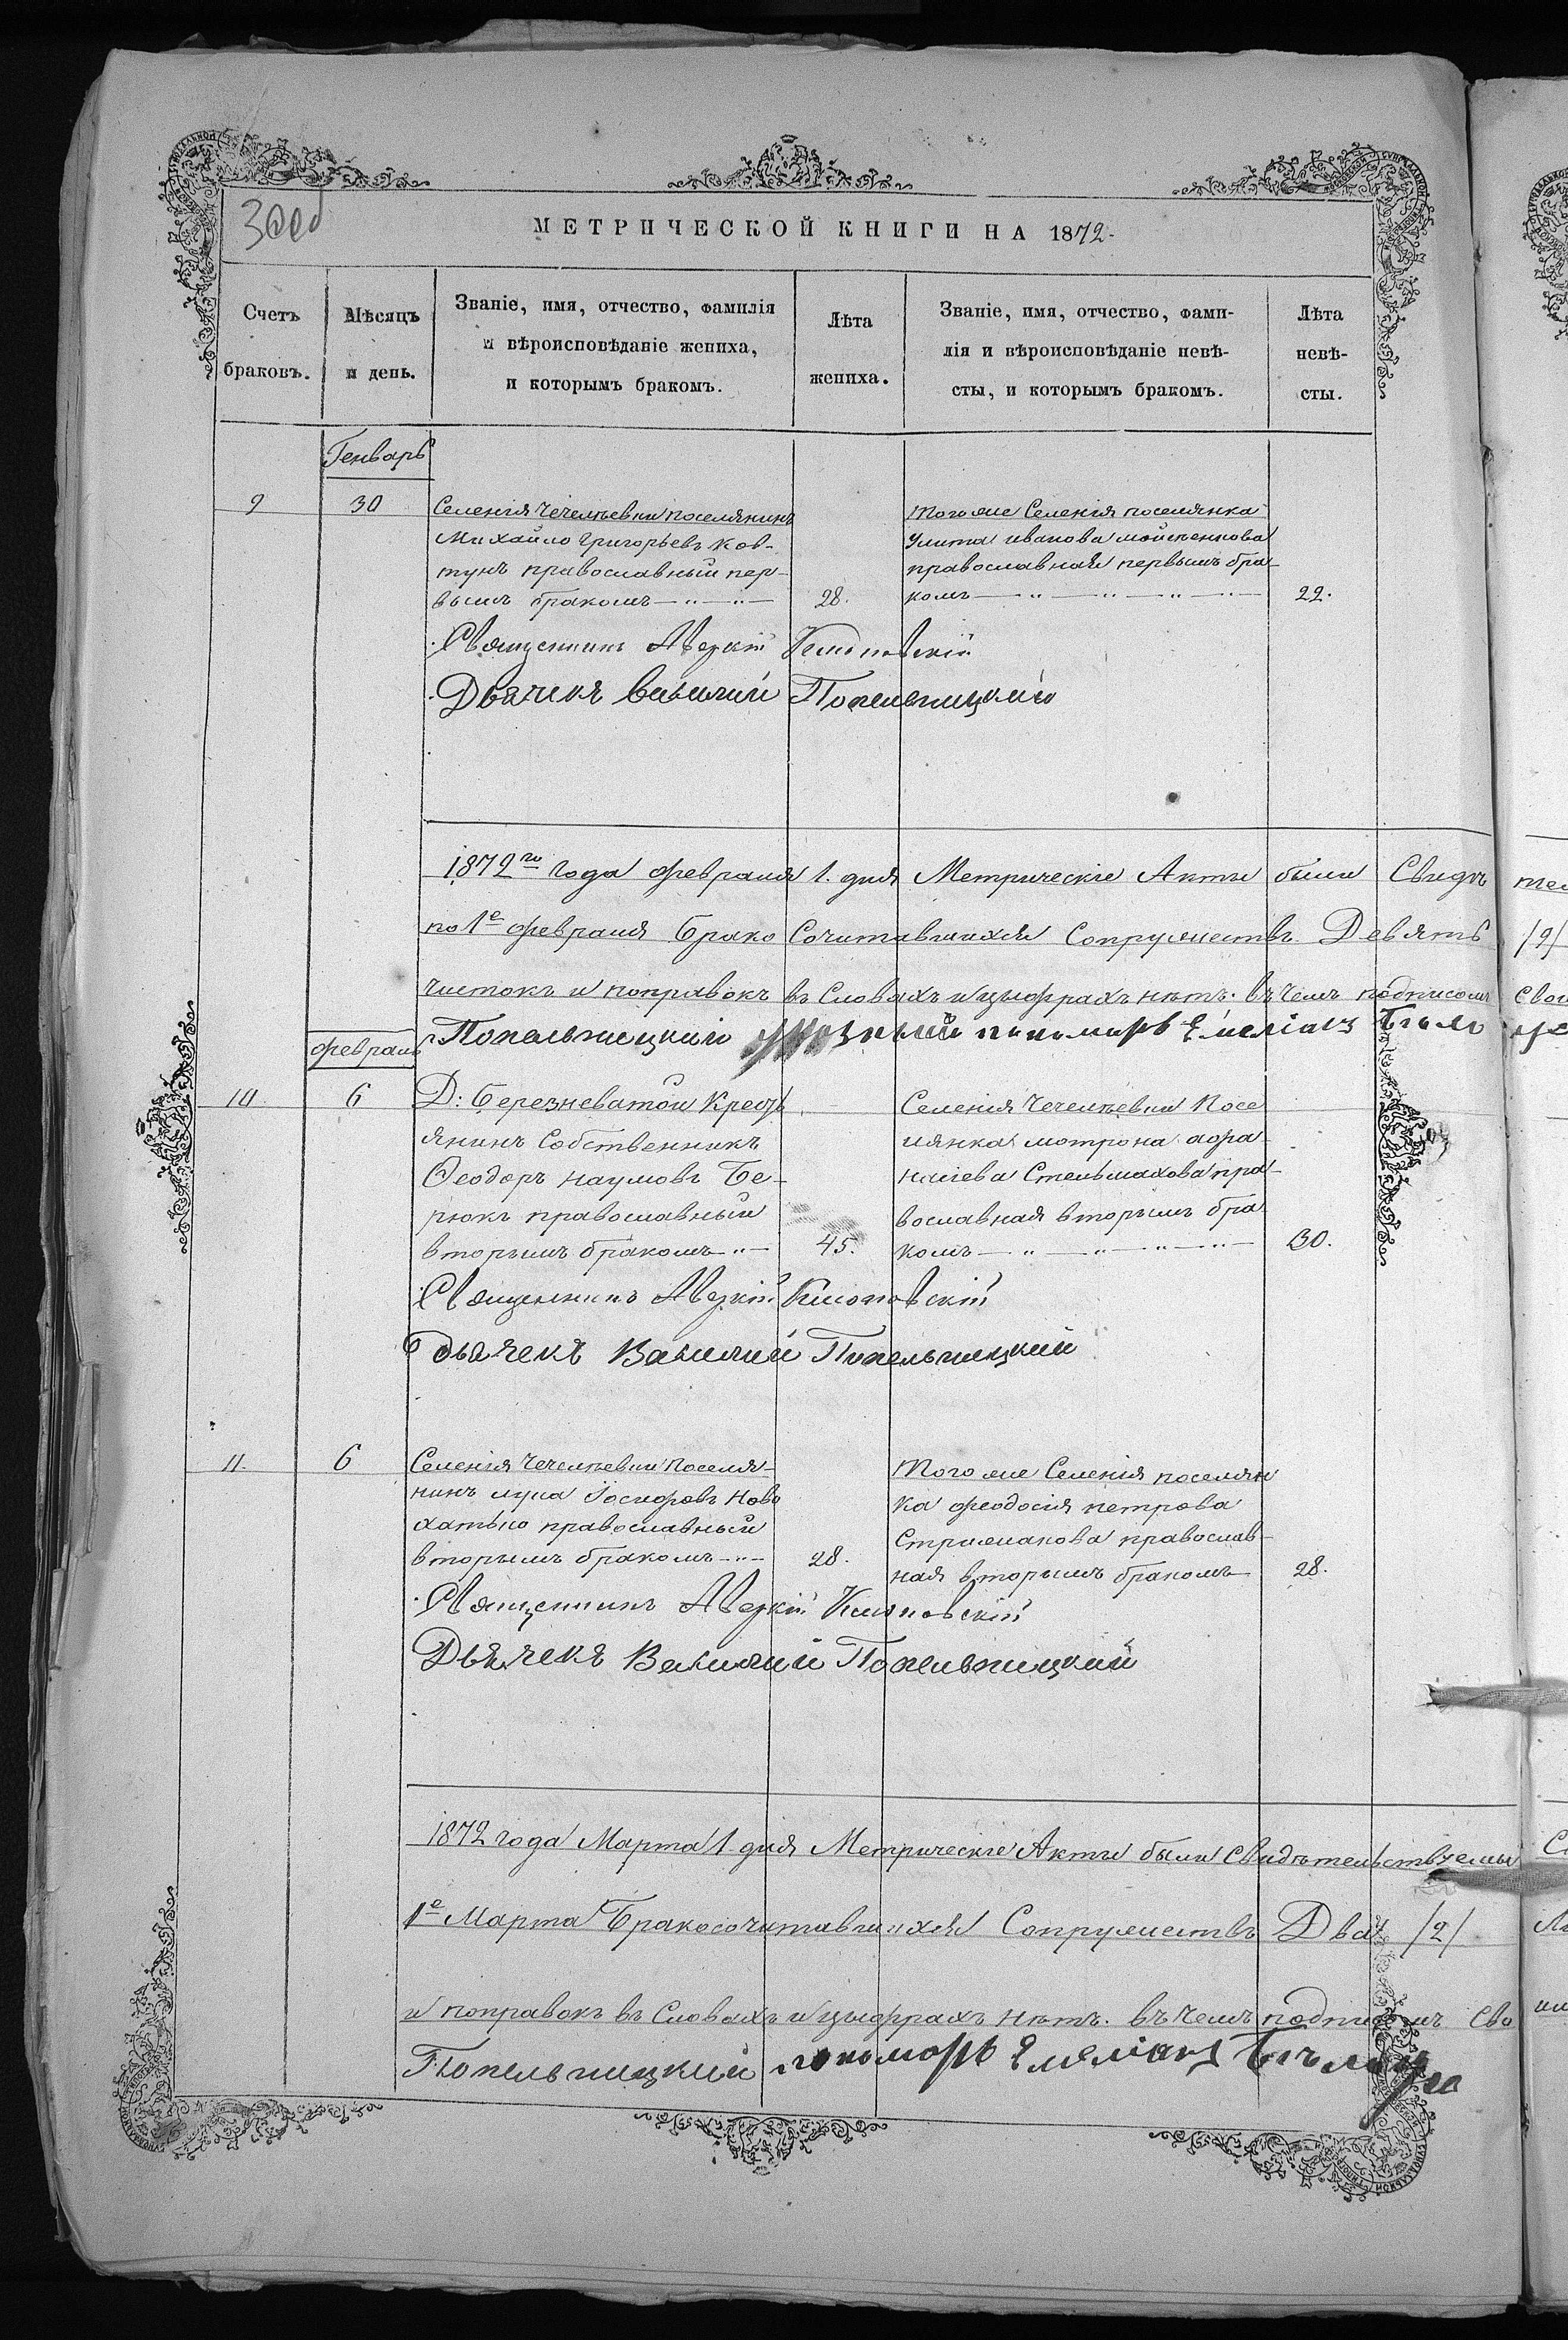 МЕТРИЧЕСКОЙ КНИГИ НА 1872.
Счетъ браковъ.
Мѣсяцъ и день.
Званіе, имя, отчество, фамилія
и вѣроисповѣданіе жениха,
и которымъ бракомъ.
Лѣта жениха.
Званіе, имя, отчество, фами-
лія и вѣроисповѣданіе невѣ-
сты, и которымъ бракомъ.
Лѣта невѣ-
сты.
Генварь
9
30
Селенія Чечелѣевки поселянинъ
Михайло Григорьевъ Ков-
тунъ православный пер-
вымъ бракомъ
28.
Того же Селенія поселянка
Улита иванова мойсѣенкова
православная первымъ бра-
комъ
22.
Священникъ Аверкій Клоповскій
Дьячекъ Василий Попельницкий
1872го года февраля 1. дня Метрическіе Акты были Свидѣ
по 1е февраля Брако Сочитавшихся Сопружествъ Девять /9/
чистокъ и поправокъ въ Словахъ и цыфрахъ нѣтъ. въ чемъ подписомъ
Попельницкий пономарь Емеліанъ
февраль
10
6
Д: Березневатой Кресть
янинъ Собственникъ
Ѳеодоръ наумовъ Бе-
рюкъ православный
вторымъ бракомъ
45.
Селенія Чечелѣевки Посе
лянка мотрона афа-
насіева Стельмахова пра-
вославная вторымъ бра
комъ
30.
Священникъ Аверкій Клоповскій
дьячекъ Василий Попельницкий
11.
6
Селенія Чечелѣевки Поселя-
нинъ лука Іосифовъ Ново
хатько православный
вторымъ бракомъ
28.
Того же Селенія поселян
ка феодосія петрова
Стрижакова православ-
ная вторымъ бракомъ
28.
Священникъ Аверкій Клоповскій
Дьячекъ Василий Попельницкий
1872 года Марта 1 дня Метрическіе Акты были Свидѣтельствуемы
1е Марта Бракосочитавшихся Сопружествъ Два /2/
и поправокъ въ Словахъ и цыфрахъ нѣтъ. въ чемъ подписомъ Сво
Попельницкий пономарь Емеліанъ